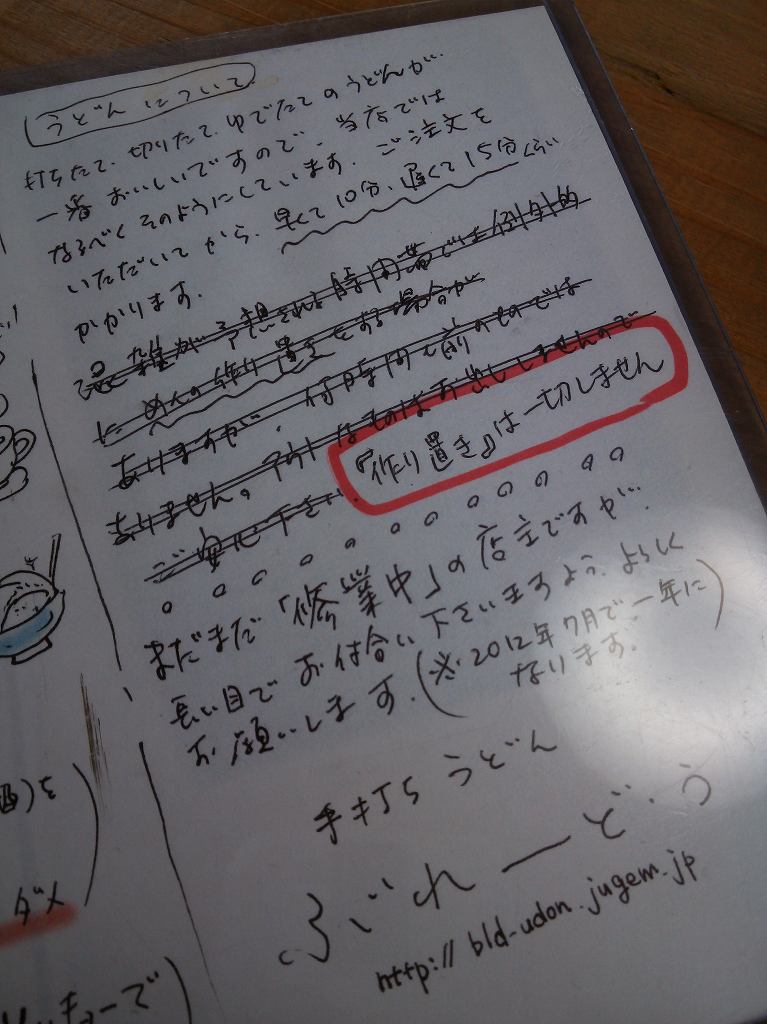 うどんについて
打ちたて、切りたて、ゆでたてのうどんが、
一番おいしいですので、当店では
なるべくそのようにしています。ご注文を
いただいてから、早くて10分、遅くて15分ぐらい
かかります。
混雑が予想される時間帯では例外的
に、めんの作り置きをする場合が
ありますが、何時間も前のものでは
ありません。アウトなものはお出ししませんので
ご安心下さい。『作り置き』は一切しません
まだまだ「修業中」の店主ですが、
長い目でお付合い下さいますよう、よろしく
お願いします。(※2012年7月で一年に
なります。)
手打ちうどん
ぶれーど・う
http://bld-udon.jugem.jp
酒)を
ダメ
キューで